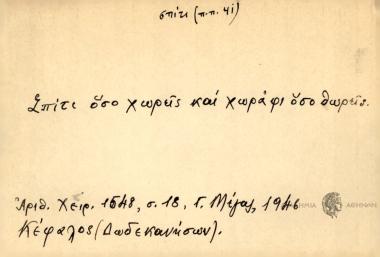 σπίτι (π.π. 41)
Σπίτι ὅσο χωρεῖς καί χωράφι ὅσο θωρεῖς.
Ἀριθ. Χειρ. 1548, σ. 18, Γ. Μέγας, 1946
Κέφαλος (Δωδεκανήσων).
ΑΘΗΝΩΝ